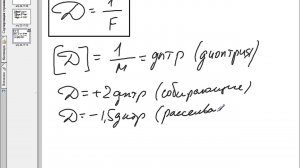 D = 1/F
[D] = 1/м = дптр (диоптрия)
D = +2 дптр (собирающие)
D = -1,5 дптр (рассеива